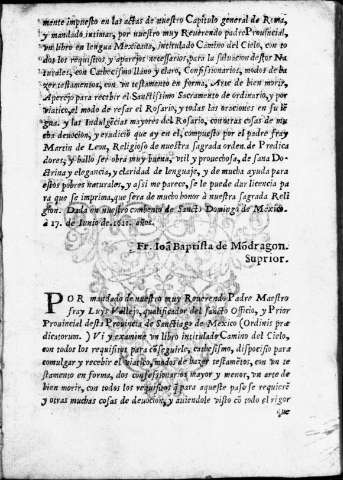 mente impuesto en las actas de nuestro Capitulo general de Roma,
y mandado intimar, por nuestro muy Reuerendo padre Prouincial,
vn libro en lengua Mexicana, intitulado Camino del Cielo, con to
dos los requisitos y aparejos necessarios, para la saluacion destos Na
turales, con Cathecismo llano y claro, Confissionarios, modos de ha
zer testamentos, con vn testamento en forma, Arte de bien morir,
Aparejo para recebir el Sanctissimo Sacramento de ordinario, y por
viatico, el modo de resar el Rosario, y todas las oraciones en su lē
gua. y las Indulgēcias mayores del Rosario, con otras cosas de mu
cha deuocion, y erudiciō que ay en el, compuesto por el padre fray
Martin de Leon, Religioso de nuestra sagrada orden de Predica
dores, y hallo ser obra muy buena, vtil y prouechosa, de sana Doc
trina y elegancia, y claridad de lenguaje, y de mucha ayuda para
estos pobres naturales, y assi me parece, se le puede dar licencia pa
ra que se imprima, que sera de mucho honor à nuestra sagrada Reli
gion. Dada en nuestro conbento de Sancto Domingo de Mexico.
à 17. de Iunio de 1611. años.
Fr. Ioā Baptista de Mōdragon.
Suprior.
POR mandado de nuestro muy Reuerendo Padre Maestro
fray Luys Vallejo, qualificador del sancto Officio, y Prior
Prouincial desta Prouincia de Sanctiago de Mexico (Ordinis præ
dicatorum. ) Vi y examine vn libro intitulado Camino del Cielo,
con todos los requisitos para conseguirle, cathecismo, disposicio para
comulgar y recebir el viatico, modos de hazer testamētos, con vn te
stamento en forma, dos confessionarios mayor y menor, vn arte de
bien morir, con todos los requisitos q̃ para aqueste passo se requierē
y otras muchas cosas de deuocion, y auiendole visto cō todo el rigor
que